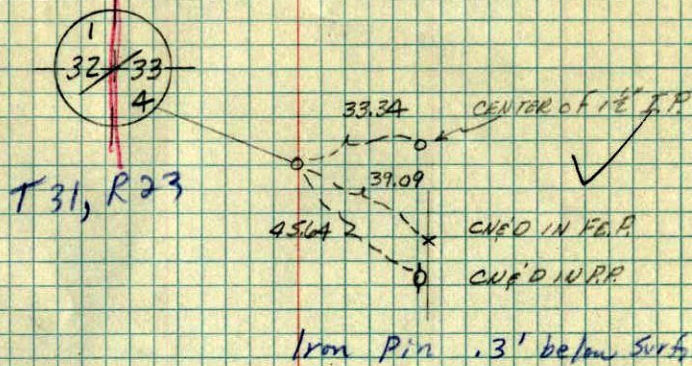 1
32 33
4
33.34 CENTER OF 1½" I.P.
T 31, R 23
39.09
45.64 CN&'D IN FE.P.
CN&'D IN P.P.
Iron Pin .3' below Surf